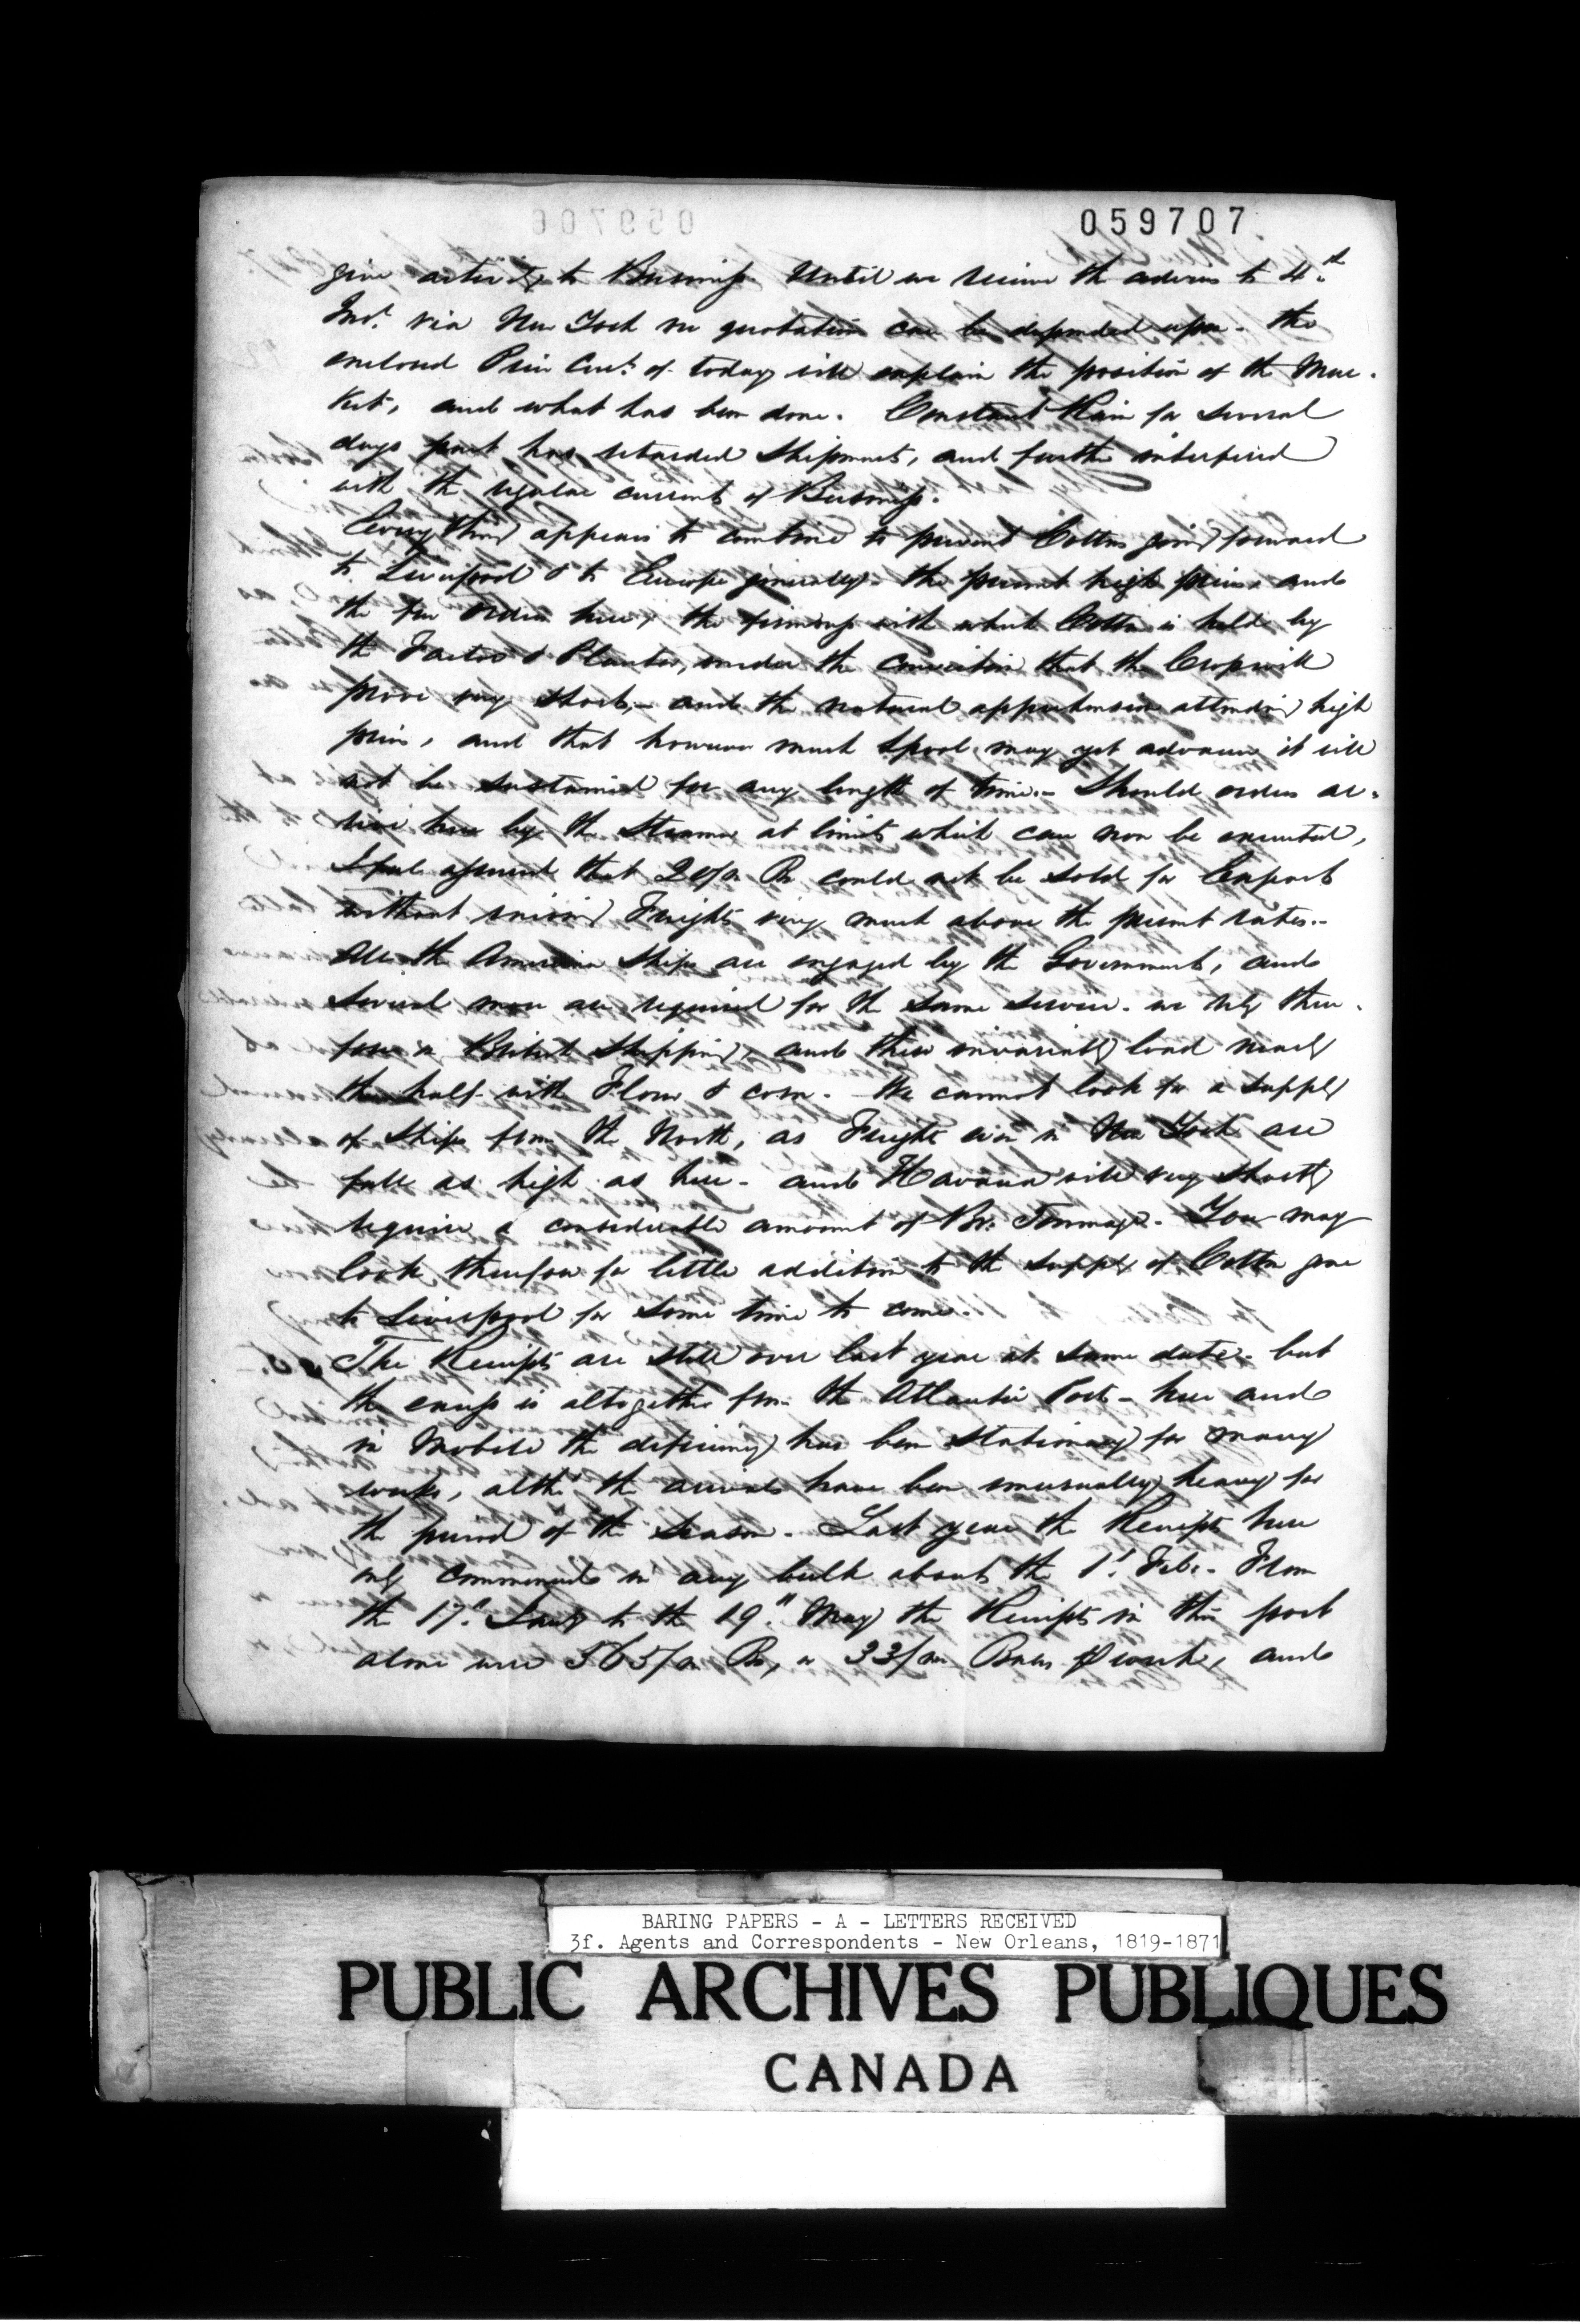 059706
059707
give activity to Business. Until we receive the advices to 4th
Inst. via New York no quotation can be depended upon. the
enclosed Price Curt. of today will explain the position of the Mar-
ket, and what has been done. Constant Rain for several
days past has retarded Shipments, and further interfered
with the regular current of Business.
Every thing appears to combine to prevent Cotton going forward
to Liverpool & to Europe generally. the present high prices and
the few orders here, the firmness with which Cotton is held by
the Factors & Planters, under the conviction that the Crop will
prove very short,- and the natural apprehension attending high
prices, and that however much Lpool may yet advance it will
not be sustained for any length of time.- Should orders ar-
rive here by the Steamer at limits which can now be executed,
I feel assured that 20/m Bs could not be sold for Export
without raising Freights very much above the present rates.-
All the American Ships are engaged by the Government, and
several more are required for the same service. we rely there-
fore on British Shipping, and these invariably load nearly
the half with Flour & corn. We cannot look for a supply
of Ships from the North, as Freights even in New York are
full as high as here. and Havana will very shortly
require a considerable amount of Br. Tonnage. You may
look therefore for little addition to the supply of Cotton gone
to Liverpool for some time to come.
The Receipts are still over last year at same date. but
the excess is altogether from the Atlantic Ports - here and
in Mobile the deficiency has been stationary for many
weeks, altho' the arrivals have been unusually heavy for
the period of the season. Last year the Receipts here
only commenced in any bulk about the 1st Feb. From
the 17th Jany to the 19th May the Receipts in this port
alone were 565/m Bs, or 33/m Bales P week, and
BARING PAPERS - A - LETTERS RECEIVED
3f. Agents and Correspondents - New Orleans, 1819-1871
PUBLIC ARCHIVES PUBLIQUES
CANADA